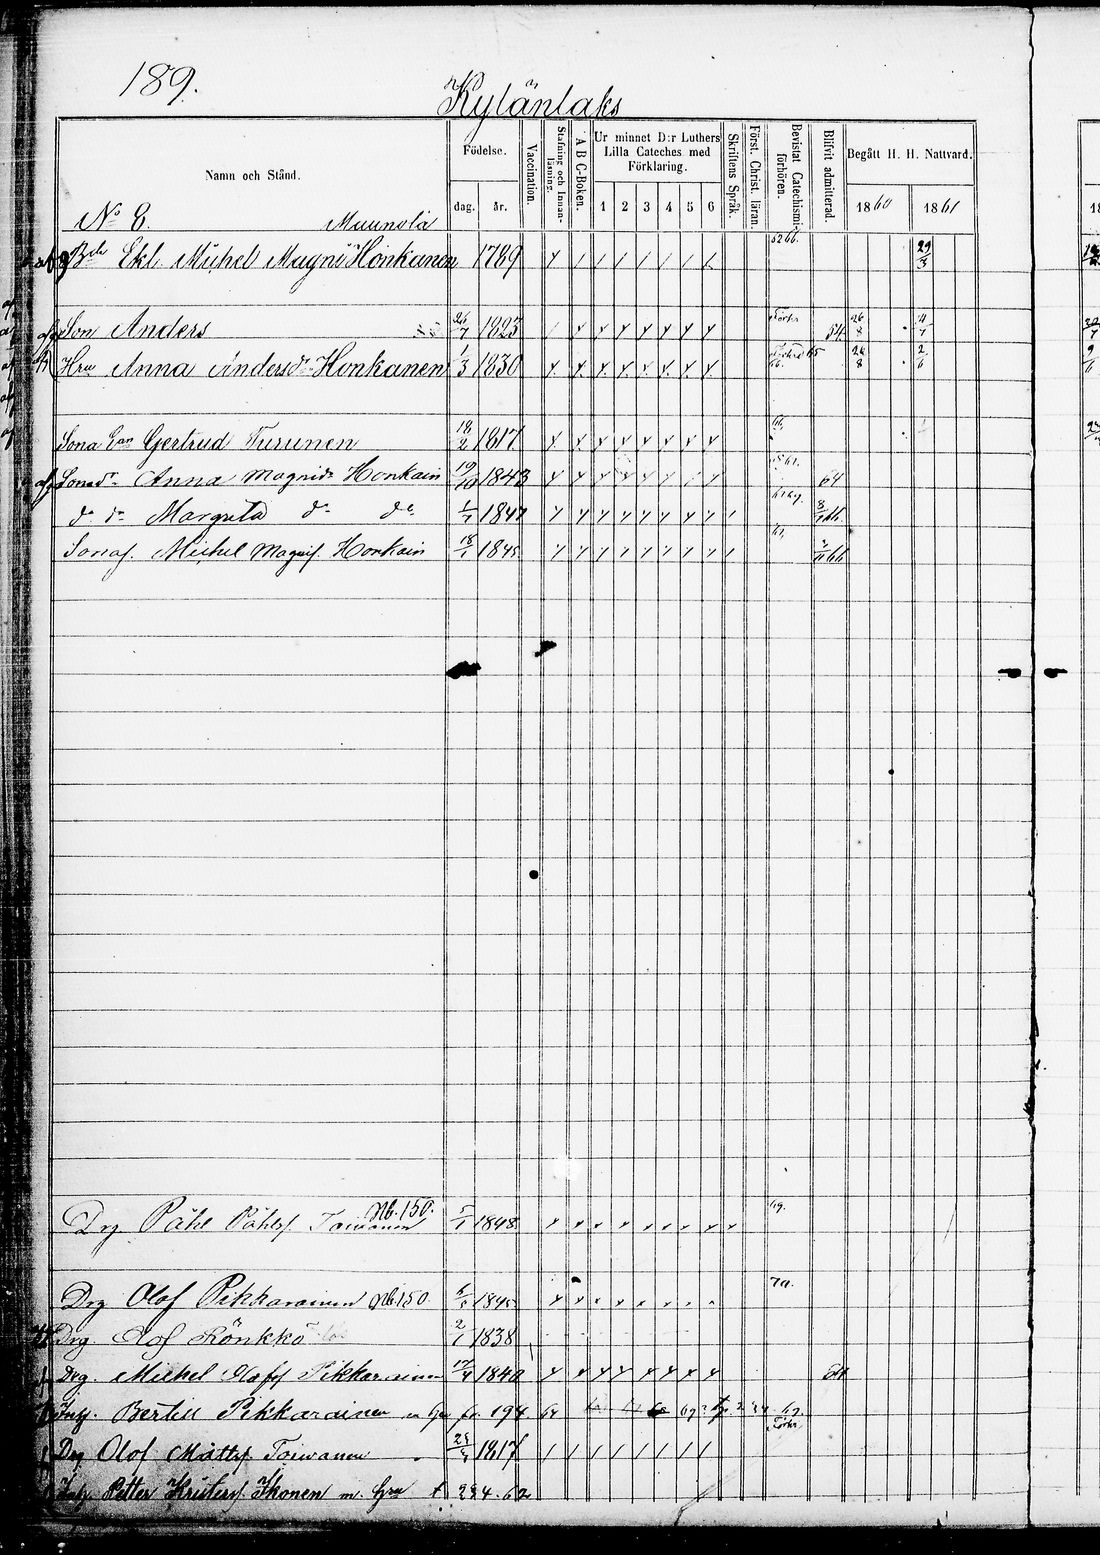 189.
Kylänlaks
Namn och Stånd.
Födelse.
dag. år.
Vaccination.
Stafning och Innanläsning.
A B C-Boken.
Ur minnet D:r Luthers Lilla Cateches med Förklaring.
1 2 3 4 5 6
Skriftens Språk.
Först. Christ. läran.
Bevistat Catechismiförhören.
Blifvit admitterad.
Begått H. H. Nattvard.
1860 1861
No 8. Maunola
Michel Magni Honkanen 1789 29/3
Son Anders 26/7 1823 54. 26/8
Hru Anna Andersdr Honkanen 1/3 1830 26/8 2/6
Sona Gertrud Turunen 18/2 1817
Sonadr Anna Magnidr Honkain 19/10 1843 64
dr dr Margreta dr do 1847 66.
Sonas. Michel Magnis. Honkain 18/1 1845 66
Drg Påhl Påhls. Toivanen Nb. 150. 5/1 1848. 69.
Drg Olof Pikkarainen Nb. 150 1845 70.
Drg Olof Rönkkö 2/1 1838
Drg. Michel Olofs Pikkarainen 17/4 1840
Inh. Bertill Pikkarainen 194
Drg Olof Matts. Toivanen 1817
Inh. Petter Ikonen m. hru 234. 62